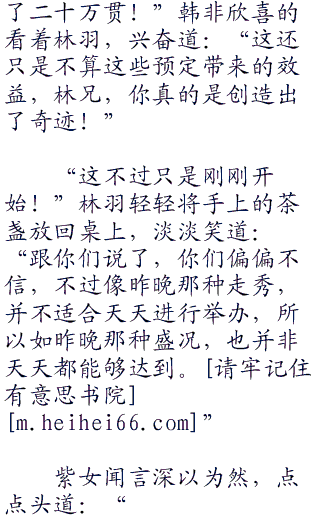 了二十万贯！”韩非欣喜的
看着林羽，兴奋道：“这还
只是不算这些预定带来的效
益，林兄，你真的是创造出
了奇迹！”
“这不过只是刚刚开
始！”林羽轻轻将手上的茶
盏放回桌上，淡淡笑道：
“跟你们说了，你们偏偏不
信，不过像昨晚那种走秀，
并不适合天天进行举办，所
以如昨晚那种盛况，也并非
天天都能够达到。[请牢记住
有意思书院]
[m.heihei66.com]”
紫女闻言深以为然，点
点头道：“